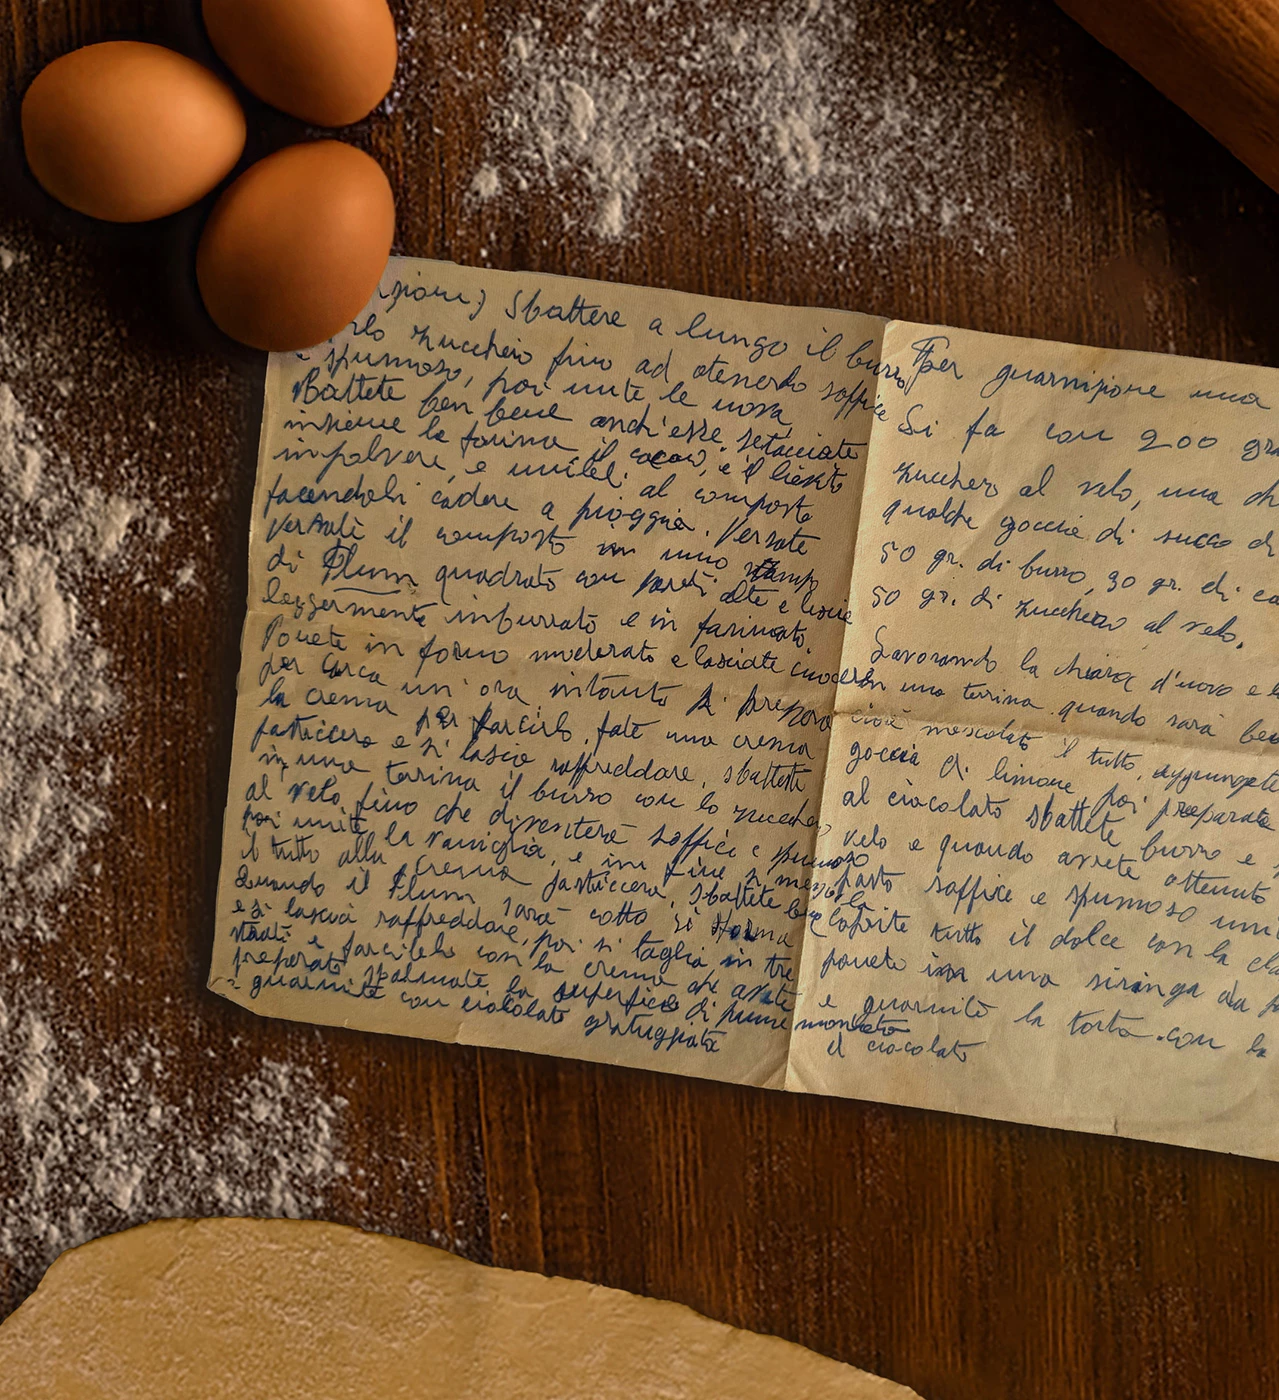 Sbattere a lungo il burro
zucchero fino ad otenerdo soffice
e spumoso, poi unite le uova
Battete ben bene anch'esse setacciate
insieme la farina il cacao, e il lievito
in polvere, e uniteli al composto
facendoli cadere a pioggia. Versate
versate il composto in uno stampo
di Plum quadrato con pareti alte e liscie
leggermente imburrato e in farinato,
Ponete in forno moderato e lasciate cuocere
per circa un'ora intanto si prepara
la crema per farcirlo, fate una crema
pasticcera e si lascia raffreddare, sbattete
in una terrina il burro con lo zucchero
al velo, fino che diventerà soffice e spumoso
poi unite la vaniglia, e in fine si mescola
il tutto alla crema pasticcera, sbattete bene
Quando il Plum sarà cotto si storma
e si lascia raffreddare, poi si taglia in tre
strati e farcitelo con la crema che avete
preparato spalmate la superficie di
e guarnite con ciocolato grattuggiato
Per guarnizione una
Si fa con 200 gr
zucchero al velo, una ch
qualche goccia di succo di
50 gr. di burro, 30 gr. di ca
50 gr. di zucchero al velo.
Lavorando la chiara d'uovo e l
in una terrina quando sarà ben
cioè mescolato il tutto, aggiungete
goccia di limone poi preparate
al ciocolato sbattete burro e
velo e quando avrete ottenuto
pasto soffice e spumoso uni
Coprite tutto il dolce con la
ponete in una siringa da
e guarnite la torta con la
montata
il ciocolato